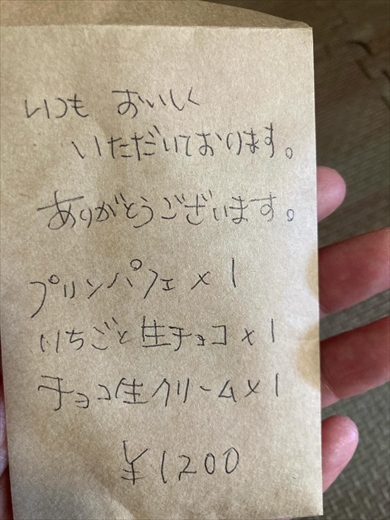 いつも おいしく
いただいております。
ありがとうございます。
プリンパフェ×1
いちごと生チョコ×1
チョコ生クリーム×1
¥1200